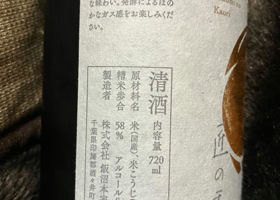 な味わい。発酵によるほの
かなガス感をお楽しみくださ
い。
Kaori
匠の
清酒 内容量 720ml
原材料名 米(国産)、米こうじ
精米歩合 58% アルコール
製造者 株式会社 飯沼本家
千葉県印旛郡酒々井町